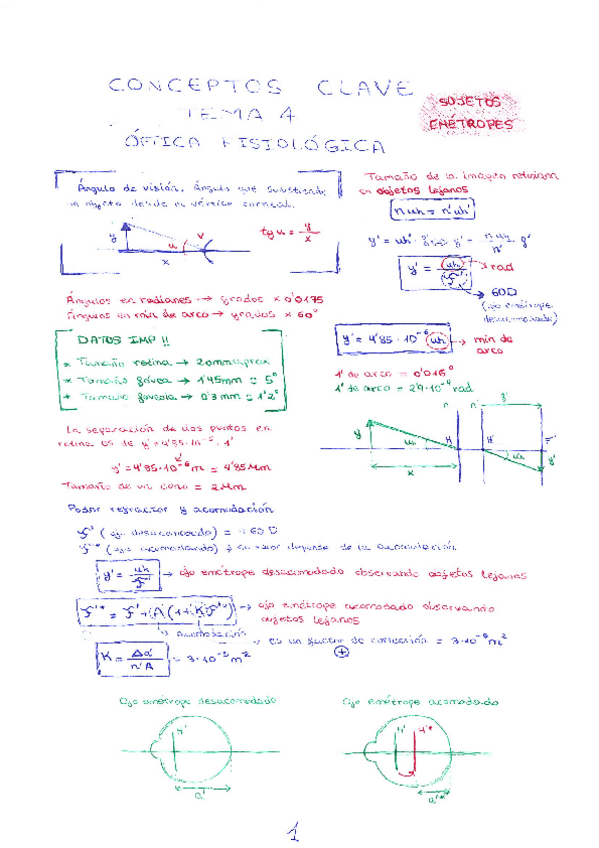 CONCEPTOS CLAVE
TEMA 4
ÓPTICA FISIOLÓGICA
SUJETOS
EMÉTROPES
Ángulo de visión. Ángulo que subtiende
un objeto desde el vértice corneal.
y
u
v
x
tg u = y/x
Tamaño de la imagen retiniana
en objetos lejanos
n uh = n' uh'
y' = uh'
y' = uh
rad
60D
(ojo emétrope
desacomodado)
Ángulos en radianes → grados × 0'0175
Ángulos en min de arco → grados × 60
DATOS IMP !!
* Tamaño retina → 20mm aprox
* Tamaño fóvea → 1'45mm ≃ 5°
* Tamaño foveola → 0'3mm ≃ 1'2°
y' = 4'85 · 10⁻⁶ uh → min de
arco
1' de arco = 0'016°
1' de arco = 2'9·10⁻⁴ rad
La separación de dos puntos en
retina es de y' = 4'85·10⁻⁶ · 1'
y' = 4'85·10⁻⁶ m = 4'85 µm
Tamaño de un cono = 2 µm
y
uh
H
H'
x
y'
Poder refractor y acomodación
(ojo desacomodado) = 60 D
(ojo acomodado) su valor depende de la acomodación
y' = uh → ojo emétrope desacomodado observando objetos lejanos
→ ojo emétrope acomodado observando
objetos lejanos
Acomodación
es un factor de corrección = 3·10⁻⁵ m²
K = Δa'/n'A = 3·10⁻⁵ m²
Ojo emétrope desacomodado
Ojo emétrope acomodado
H'
a'
H'
H'*
a'*
1